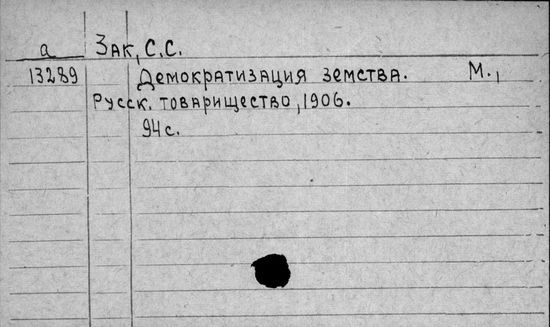 а Зак, С.С.
13289 Демократизация земства. М.,
Русск. товарищество, 1906.
94 с.